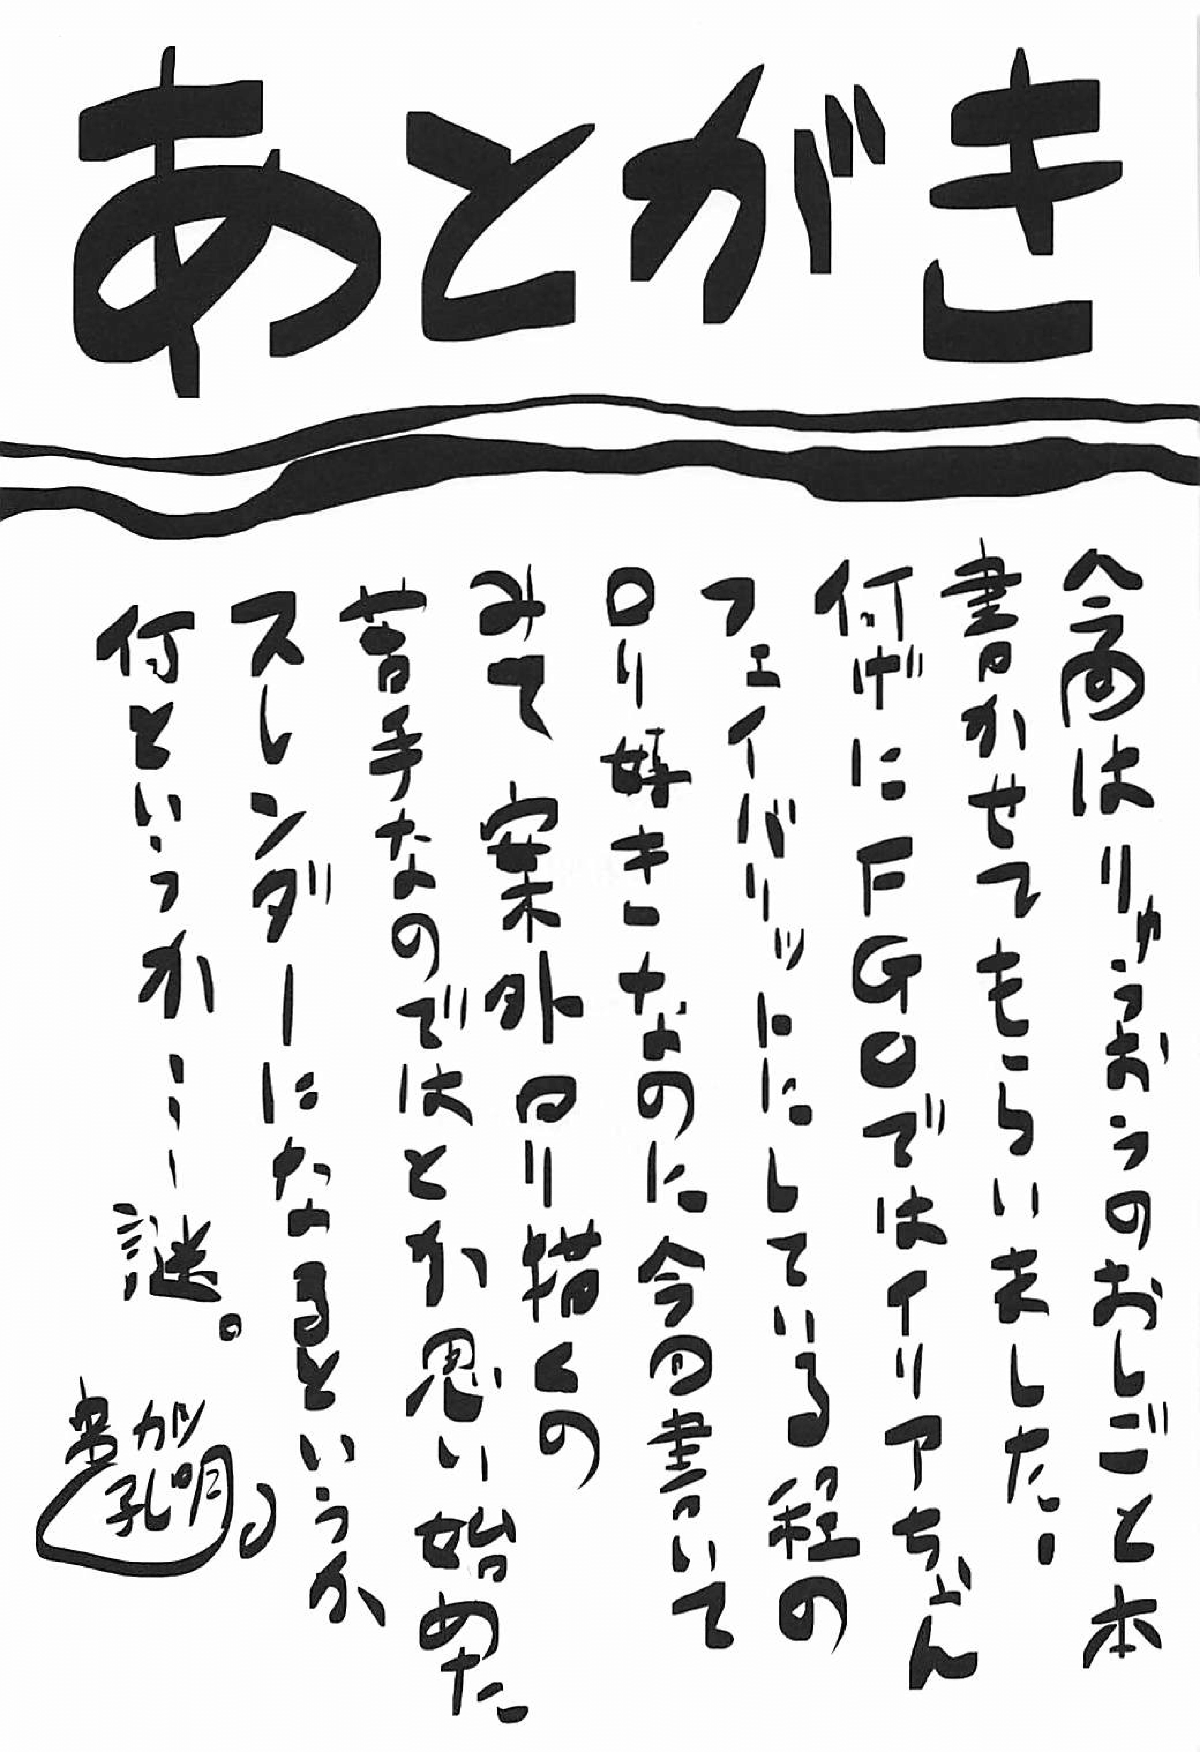 あとがき
今回はりゅうおうのおしごと本
書かせてもらいました!
何げにFGOではイリアちゃん
フェイバリットにしている程の
ロリ好きーなのに今回書いて
みて案外ロリ描くの
苦手なのではとか思い始めた
スレンダーになるというか
何というか……謎。
孔明